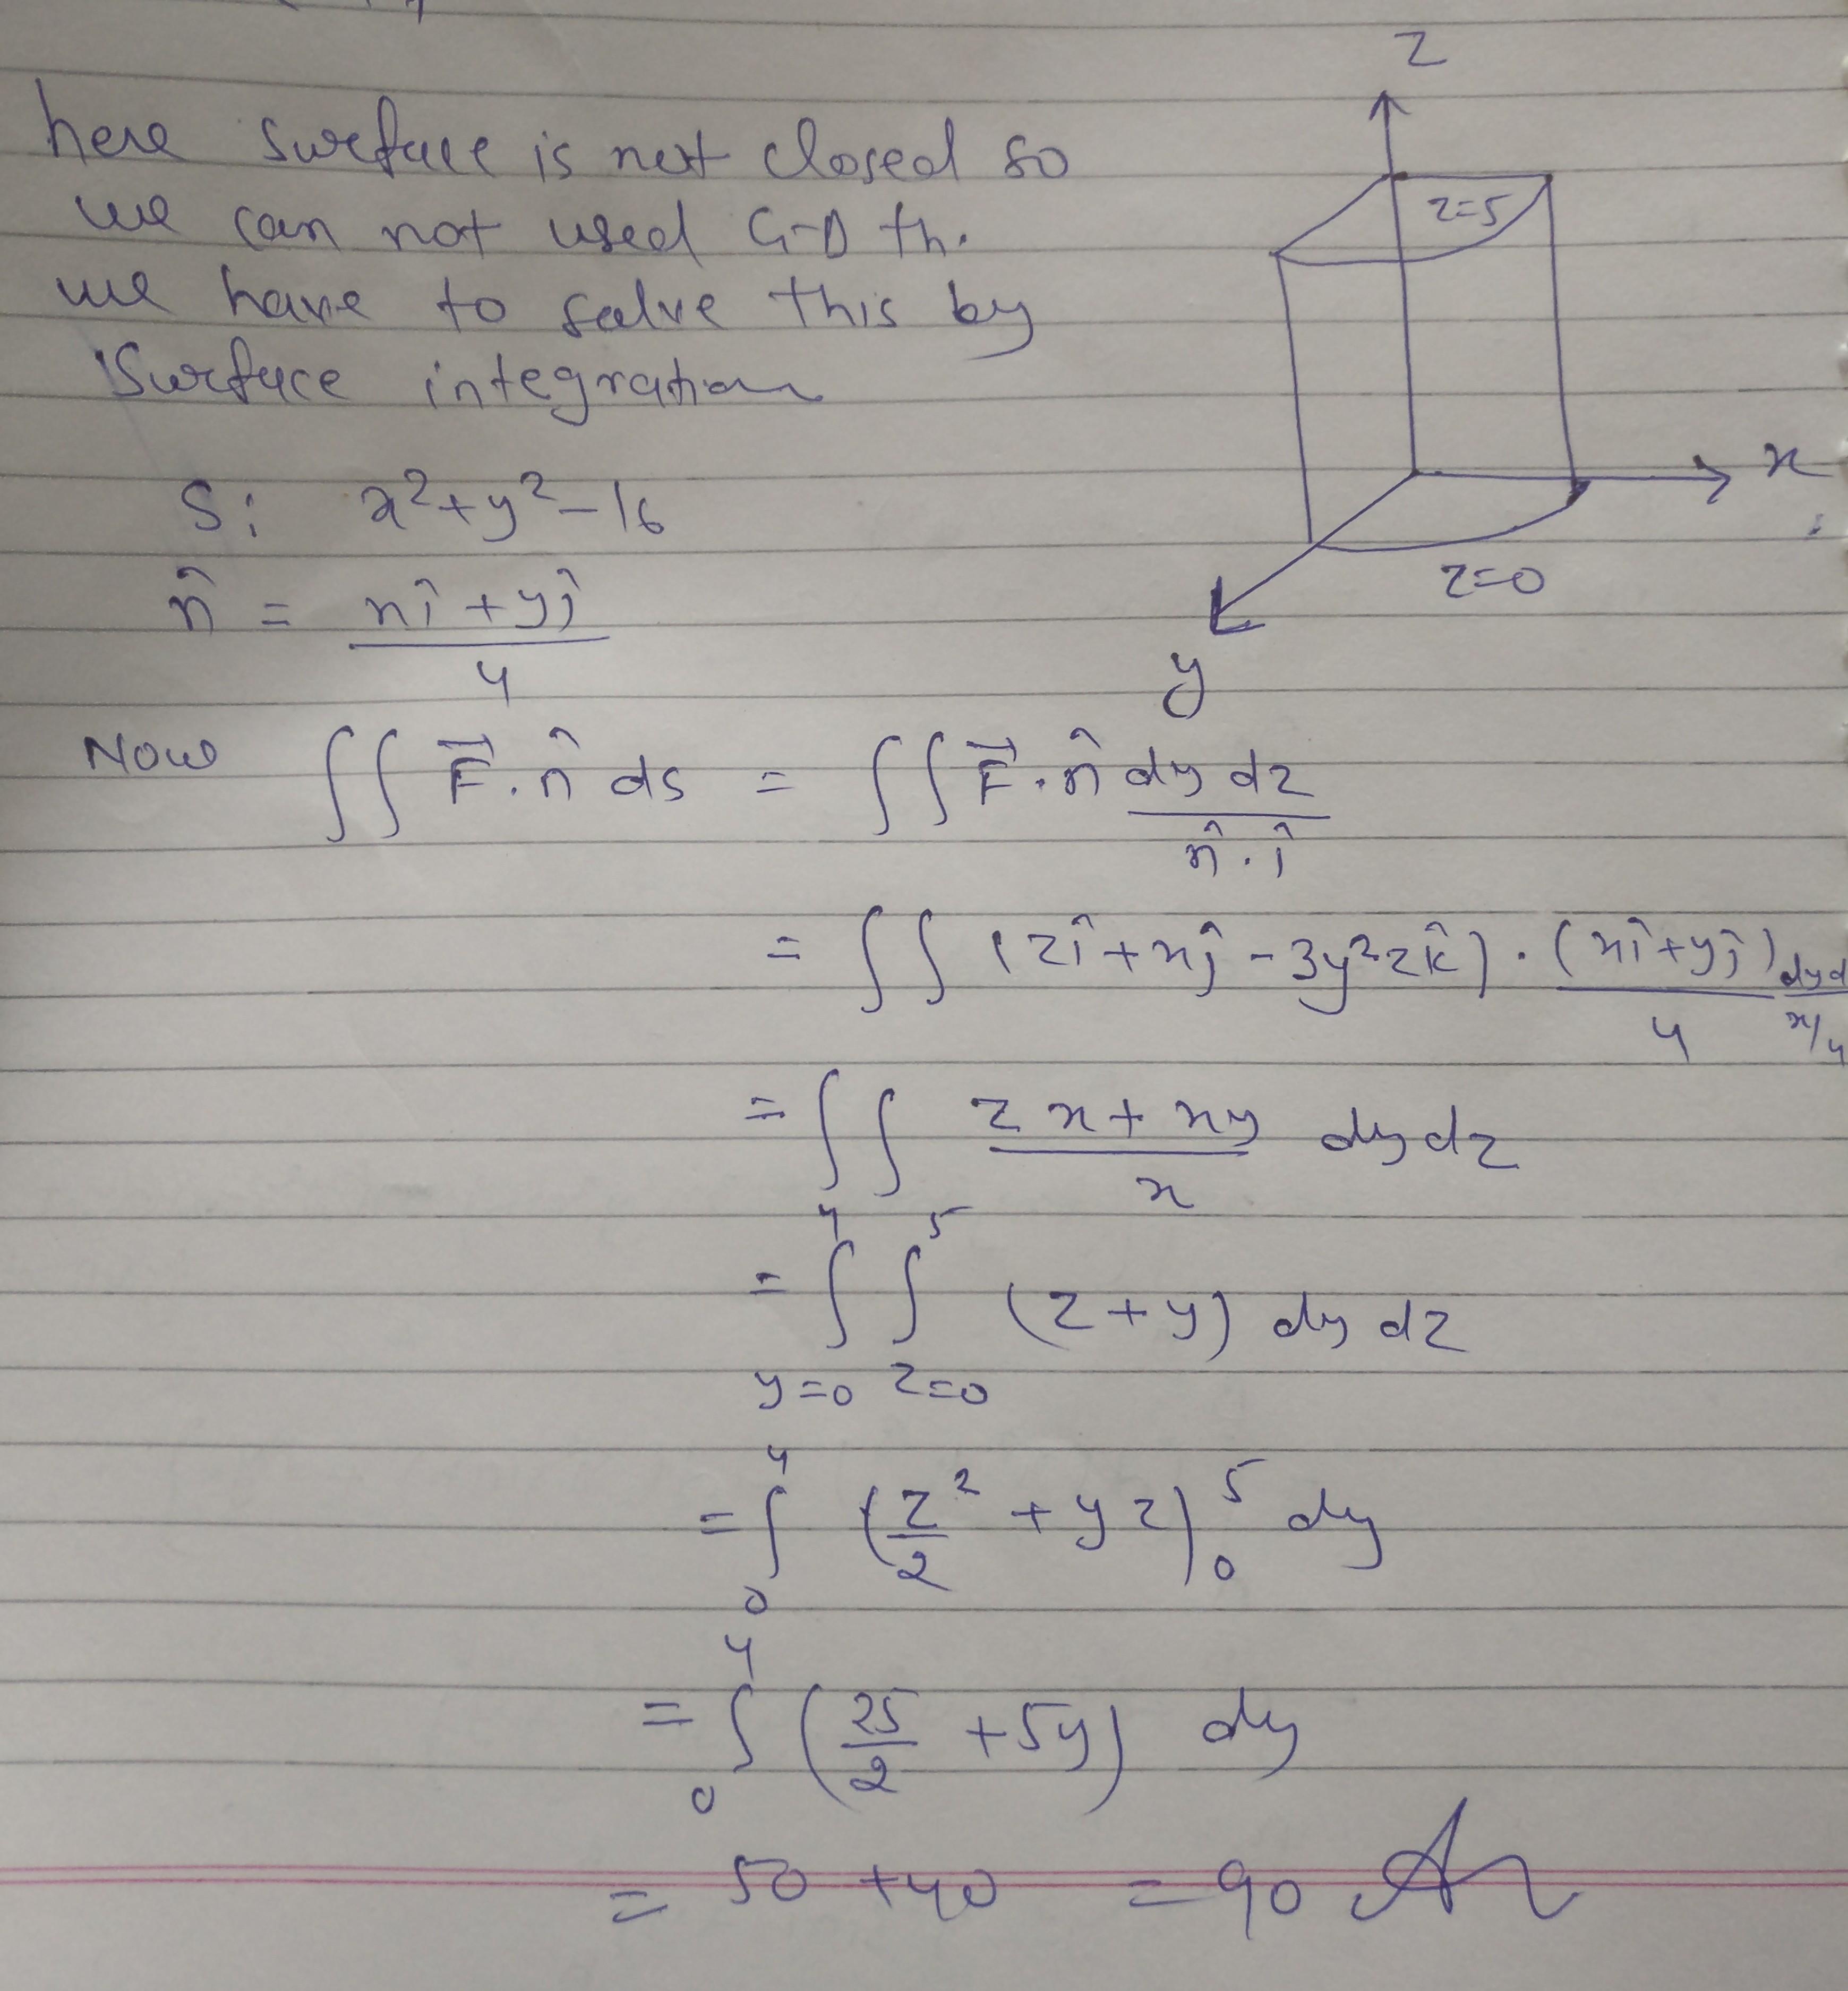 z
here surface is not closed so
we can not used G-D th.
we have to solve this by
surface integration
z=5
x
z=0
y
S: x²+y²-16
n̂ = (xî+yĵ)/4
Now ∫∫ F⃗.n̂ ds = ∫∫ F⃗.n̂ dy dz/(n̂.î)
= ∫∫ (zî+xĵ-3y²zk̂).(xî+yĵ)/4 dyd/(x/4)
= ∫∫ (zx+xy)/x dydz
= ∫_{y=0}^{4} ∫_{z=0}^{5} (z+y) dy dz
= ∫_0^4 (z²/2 + yz)_0^5 dy
= ∫_0^4 (25/2 +5y) dy
= 50 +40 = 90